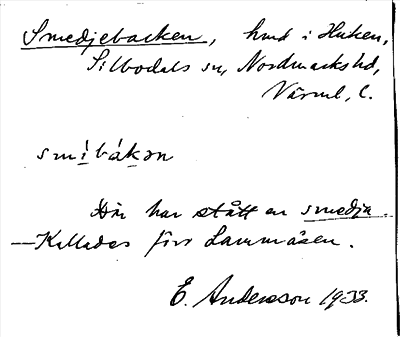 Smedjebacken, hmd i Huken,
Silbodals sn, Nordmarks hd,
Värml. l.
smibákən
Där har stått en smedja.
—Kallades förr Lammåsen.
E. Andersson 1933.